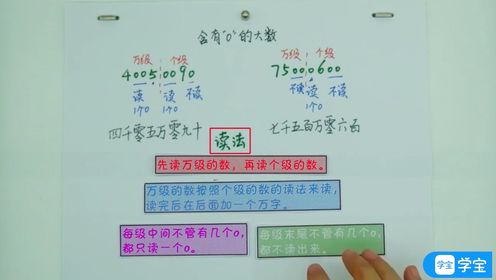 含有"0"的大数
万级 个级
4005 0090
读 读 不读
1个0 1个0
四千零五万零九十
万级 个级
7500 0600
不读 读 不读
1个0
七千五百万零六百
读法
先读万级的数，再读个级的数。
万级的数按照个级的数的读法来读，
读完后在后面加一个万字。
每级中间不管有几个0，
都只读一个0。
每级末尾不管有几个0，
都不读出来。
学宝 学宝